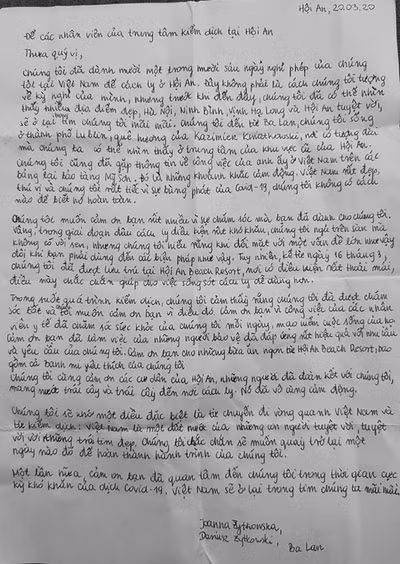 Hội An, 22.03.20
Để các nhân viên của trung tâm kiểm dịch tại Hội An
Thưa quý vị,
Chúng tôi đã dành mười một trong mười sáu ngày nghỉ phép của chúng
tôi tại Việt Nam để cách ly ở Hội An. Đây không phải là cách chúng tôi tưởng
về kỳ nghỉ của mình, nhưng trước khi đến đây, chúng tôi đã có thể nhìn
thấy nhiều địa điểm đẹp, Hà Nội, Ninh Bình, Vịnh Hạ Long và Hội An tuyệt vời,
sẽ ở lại trong tim chúng tôi mãi mãi. Chúng tôi đến từ Ba Lan, chúng tôi sống
ở thành phố Lublin, quê hương của Kazimierz Kwiatkowski, nơi có tượng đài
mà chúng ta có thể nhìn thấy ở trung tâm của khu vực cũ của Hội An.
Chúng tôi cũng đã gặp thông tin về công việc của anh ấy ở Việt Nam trên các
bảng tại bảo tàng Mỹ Sơn. Đó là những khoảnh khắc cảm động. Việt Nam rất đẹp,
thú vị và chúng tôi rất tiếc vì sự bùng phát của Covid-19, chúng tôi không có cách
nào để biết họ hoàn toàn.
Chúng tôi muốn cảm ơn bạn rất nhiều vì sự chăm sóc mà bạn đã dành cho chúng tôi.
Vâng, trong giai đoạn đầu cách ly điều kiện rất khó khăn, chúng tôi ngủ trên sàn mà
không có vòi sen, nhưng chúng tôi hiểu rằng khi đối mặt với một vấn đề lớn như vậy
đôi khi bạn phải dùng đến các biện pháp như vậy. Tuy nhiên, kể từ ngày 16 tháng 3,
chúng tôi đã được lưu trú tại Hội An Beach Resort, nơi có điều kiện rất thoải mái,
điều này chắc chắn giúp cho việc sống sót cách ly dễ dàng hơn.
Trong suốt quá trình kiểm dịch, chúng tôi cảm thấy rằng chúng tôi đã được chăm
sóc tốt và tôi muốn cảm ơn bạn vì điều đó cảm ơn bạn vì công việc của các nhân
viên y tế đã chăm sóc sức khỏe của chúng tôi mỗi ngày, mạo hiểm cuộc sống của họ
Cảm ơn bạn đã làm việc của những người bảo vệ đã đáp ứng rất hiệu quả với nhu cầu
và yêu cầu của chúng tôi. Cảm ơn bạn cho những bữa ăn ngon từ Hội An Beach Resort, bao
gồm cả bánh mì yêu thích của chúng tôi
Chúng tôi cũng cảm ơn các cư dân của Hội An, những người đã đoàn kết với chúng tôi,
mang nước trái cây và trái cây đến nơi cách ly. Nó đã vô cùng cảm động.
Chúng tôi sẽ nhớ một điều đặc biệt là từ chuyến đi vòng quanh Việt Nam và
từ kiểm dịch: Việt Nam là một đất nước của những con người tuyệt vời, tuyệt
vời với những trái tim đẹp. Chúng tôi chắc chắn sẽ muốn quay trở lại một
ngày nào đó để hoàn thành hành trình của chúng tôi.
Một lần nữa, cảm ơn bạn đã quan tâm đến chúng tôi trong thời gian cực
kỳ khó khăn của dịch Covid-19. Việt Nam sẽ ở lại trong tim chúng ta mãi mãi.
Joanna Żytkowska,
Dariusz Żytkowski,
Ba Lan